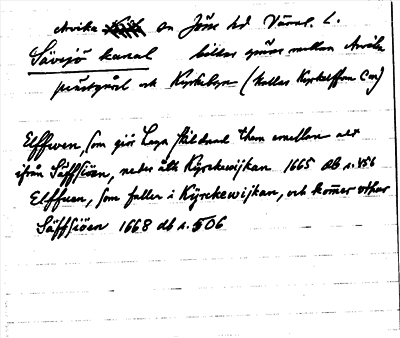 Arvika sn Jösse hd Värml. l.
Sävsjö kanal bildar gräns mellan Arvika
prästgård och Kyrkebyn (kallas Kyrkelffven C.W)
Elffwen, som giör Laga skildnad them emellan alt
ifrån Säffsiöen, neder åth Kÿrckewijkan 1665 db s. 456
Elffuen, som faller i Kÿrckewijkan, och komer vthur
Säffsiöen 1668 db s. 506